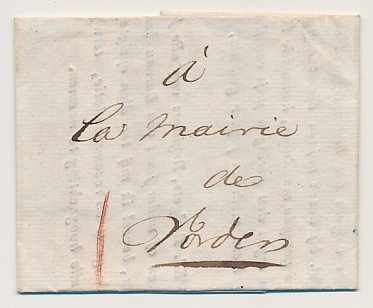 à
La Mairie
de
Vorden